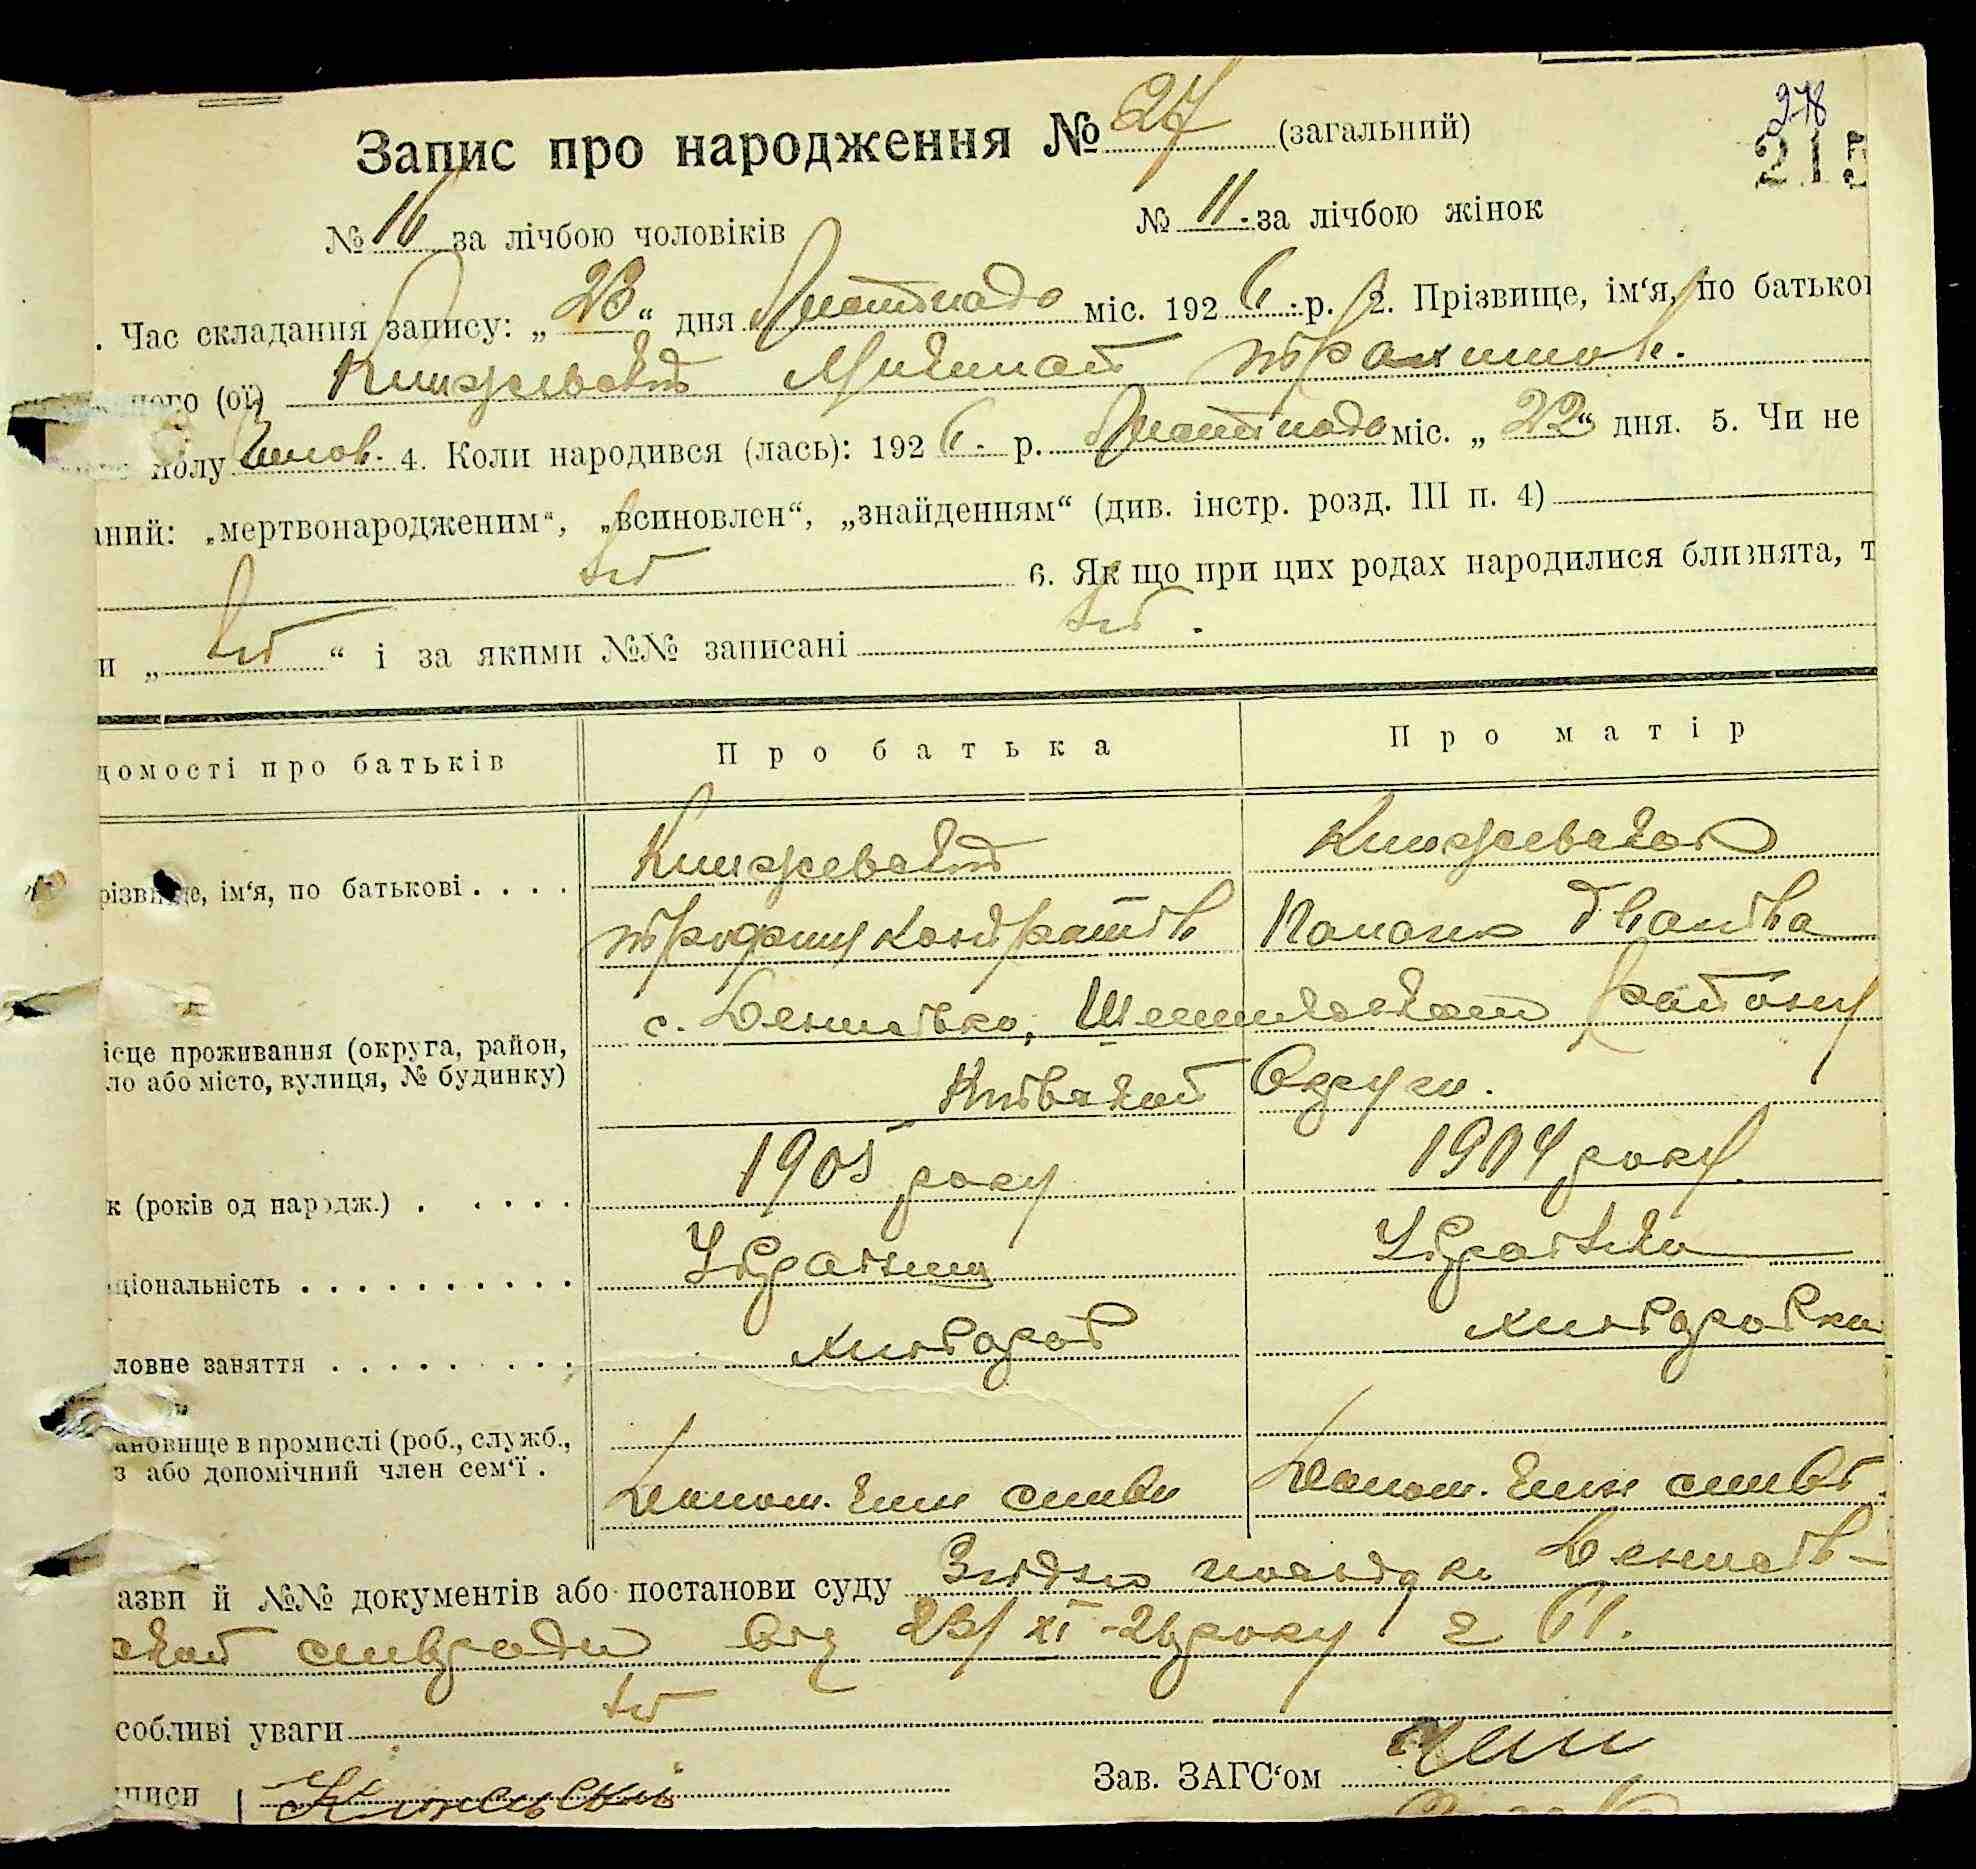 278
215
Запис про народження № 27 (загальний)
№ 16 за лічбою чоловіків № 11. за лічбою жінок
. Час складання запису: „ 23 “ дня Листопада міс. 192 6. р. 2. Прізвище, ім‘я, по батькові
ного (ої)
полу Чолов. 4. Коли народився (лась): 192 6. р. Листопада міс. „ 22 “ дня. 5. Чи не
аний: „мертвонародженим“, „всиновлен“, „знайденням“ (див. інстр. розд. III п. 4)
Ні 6. Як що при цих родах народилися близнята, т
и „ Ні “ і за якими №№ записані Ні.
домості про батьків Про батька Про матір
різвище, ім‘я, по батькові . . . .
Трофим Кондратів
с. Денисівка, району
ісце проживання (округа, район,
ло або місто, вулиця, № будинку)
Київської Округи.
к (років од народж.) . . . . . 1905 року 1904 року
ціональність . . . . . . . . . . Українец Українка
ловне заняття . . . . . . . . хлібороб хліборобка
ановище в промислі (роб., служб.,
з або допомічний член сем‘ї .
Допом. член сімьи Допом. член сімьі
азви й №№ документів або постанови суду Згідно посвідки Денисів-
ської сільради від 23/XI-26 року з 61.
собливі уваги Ні
писи Зав. ЗАГС‘ом